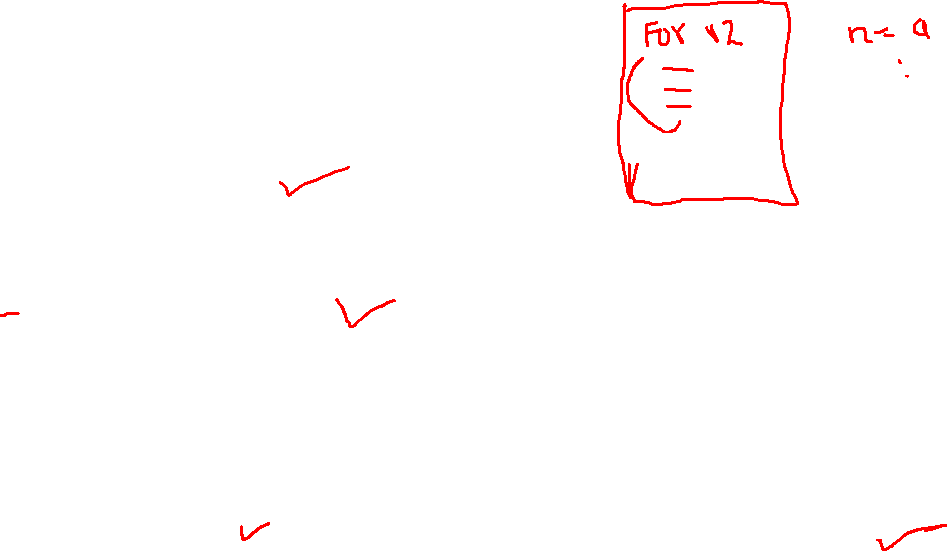 For v2
n = a